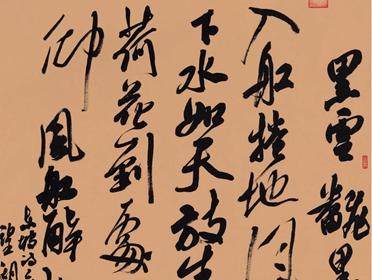 黑雲翻墨
入船捲地风
下水如天放生
荷花到處
仰風船解